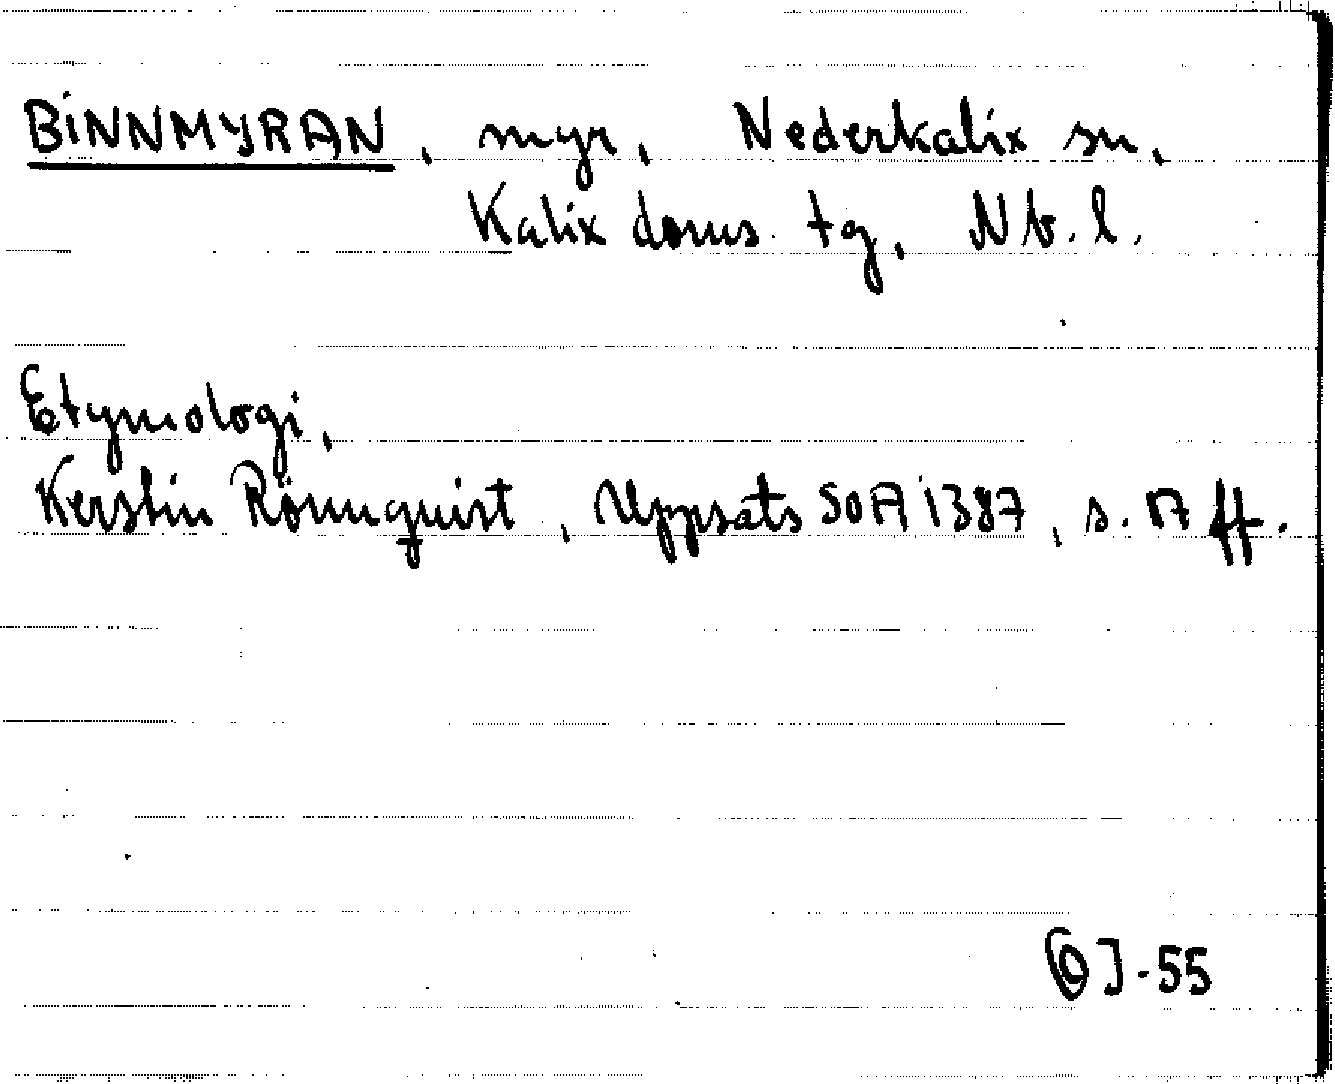 BINNMYRAN, myr, Nederkalix sn,
Kalix doms. tg, Nb. l.
Etymologi,
Kerstin Rönnquist, Uppsats SOA 1387, s. 17 ff.
J-55